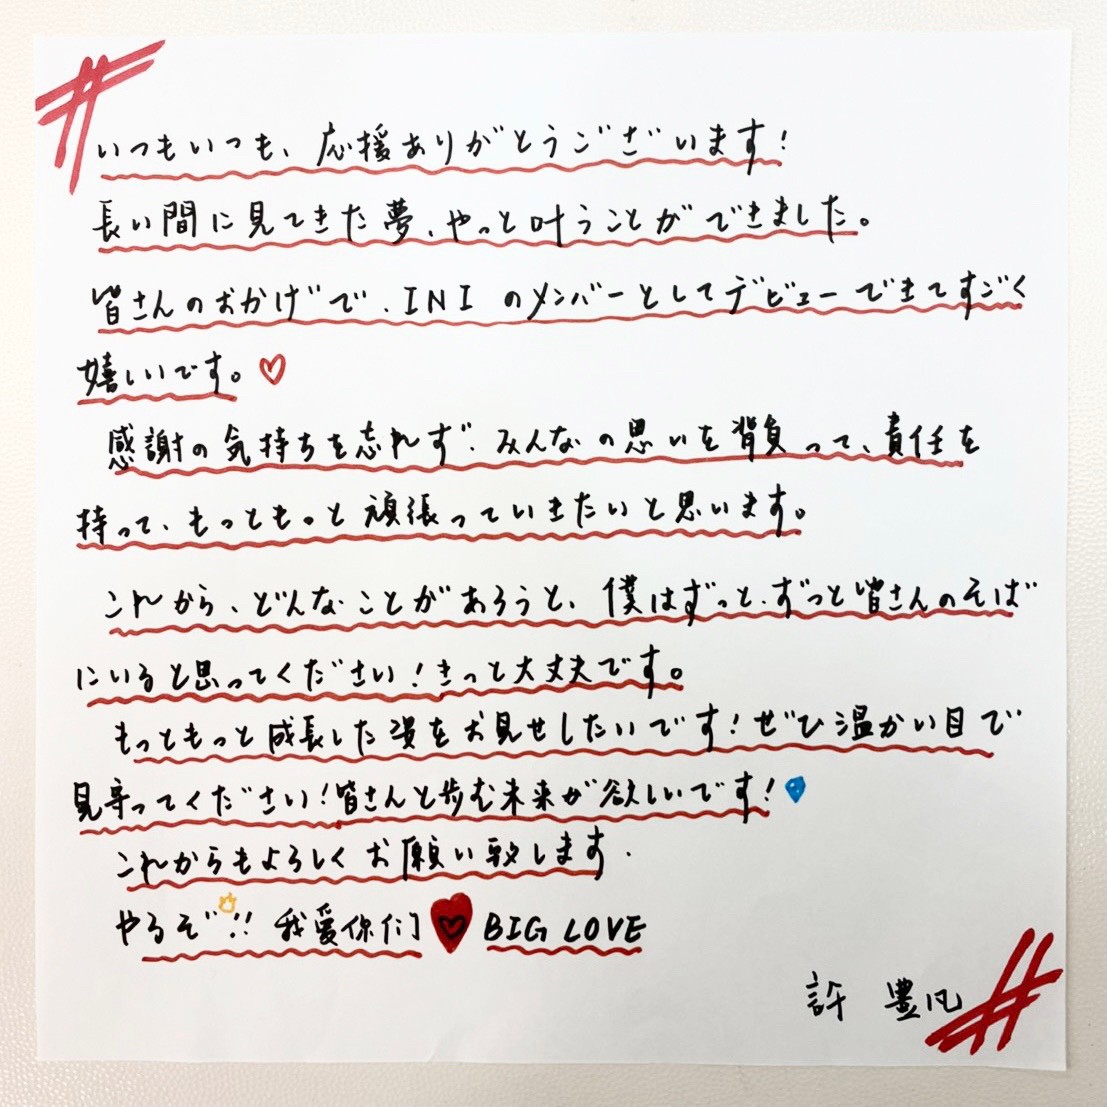 いつもいつも、応援ありがとうございます!
長い間に見てきた夢、やっと叶うことができました。
皆さんのおかげで、INIのメンバーとしてデビューできてすごく
嬉しいです。♡
感謝の気持ちを忘れず、みんなの思いを背負って、責任を
持って、もっともっと頑張っていきたいと思います。
これから、どんなことがあろうと、僕はずっと、ずっと皆さんのそば
にいると思ってください!きっと大丈夫です。
もっともっと成長した姿をお見せしたいです!ぜひ温かい目で
見守ってください!皆さんと歩む未来が欲しいです!
これからもよろしくお願い致します.
やるぞ!! 我爱你们 BIG LOVE
許 豊凡